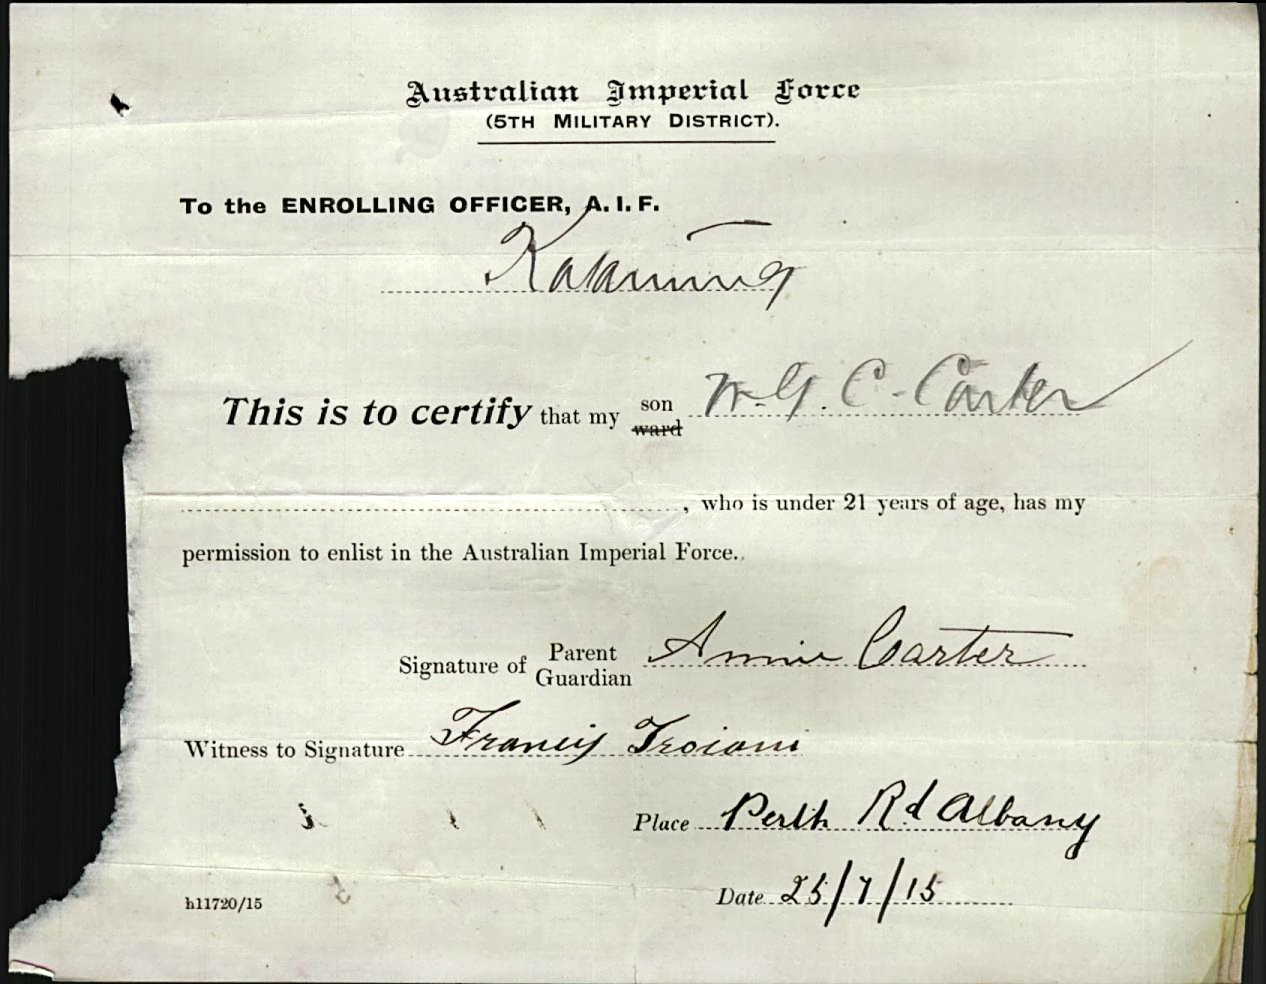 Australian Imperial Force
(5TH MILITARY DISTRICT).
To the ENROLLING OFFICER, A.I.F.
Katanning
This is to certify that my son ward W. G. C. Carter
, who is under 21 years of age, has my
permission to enlist in the Australian Imperial Force.
Signature of Parent Guardian Annie Carter
Witness to Signature Francis Troiani
Place Perth Rd Albany
h11720/15
Date 25/7/15